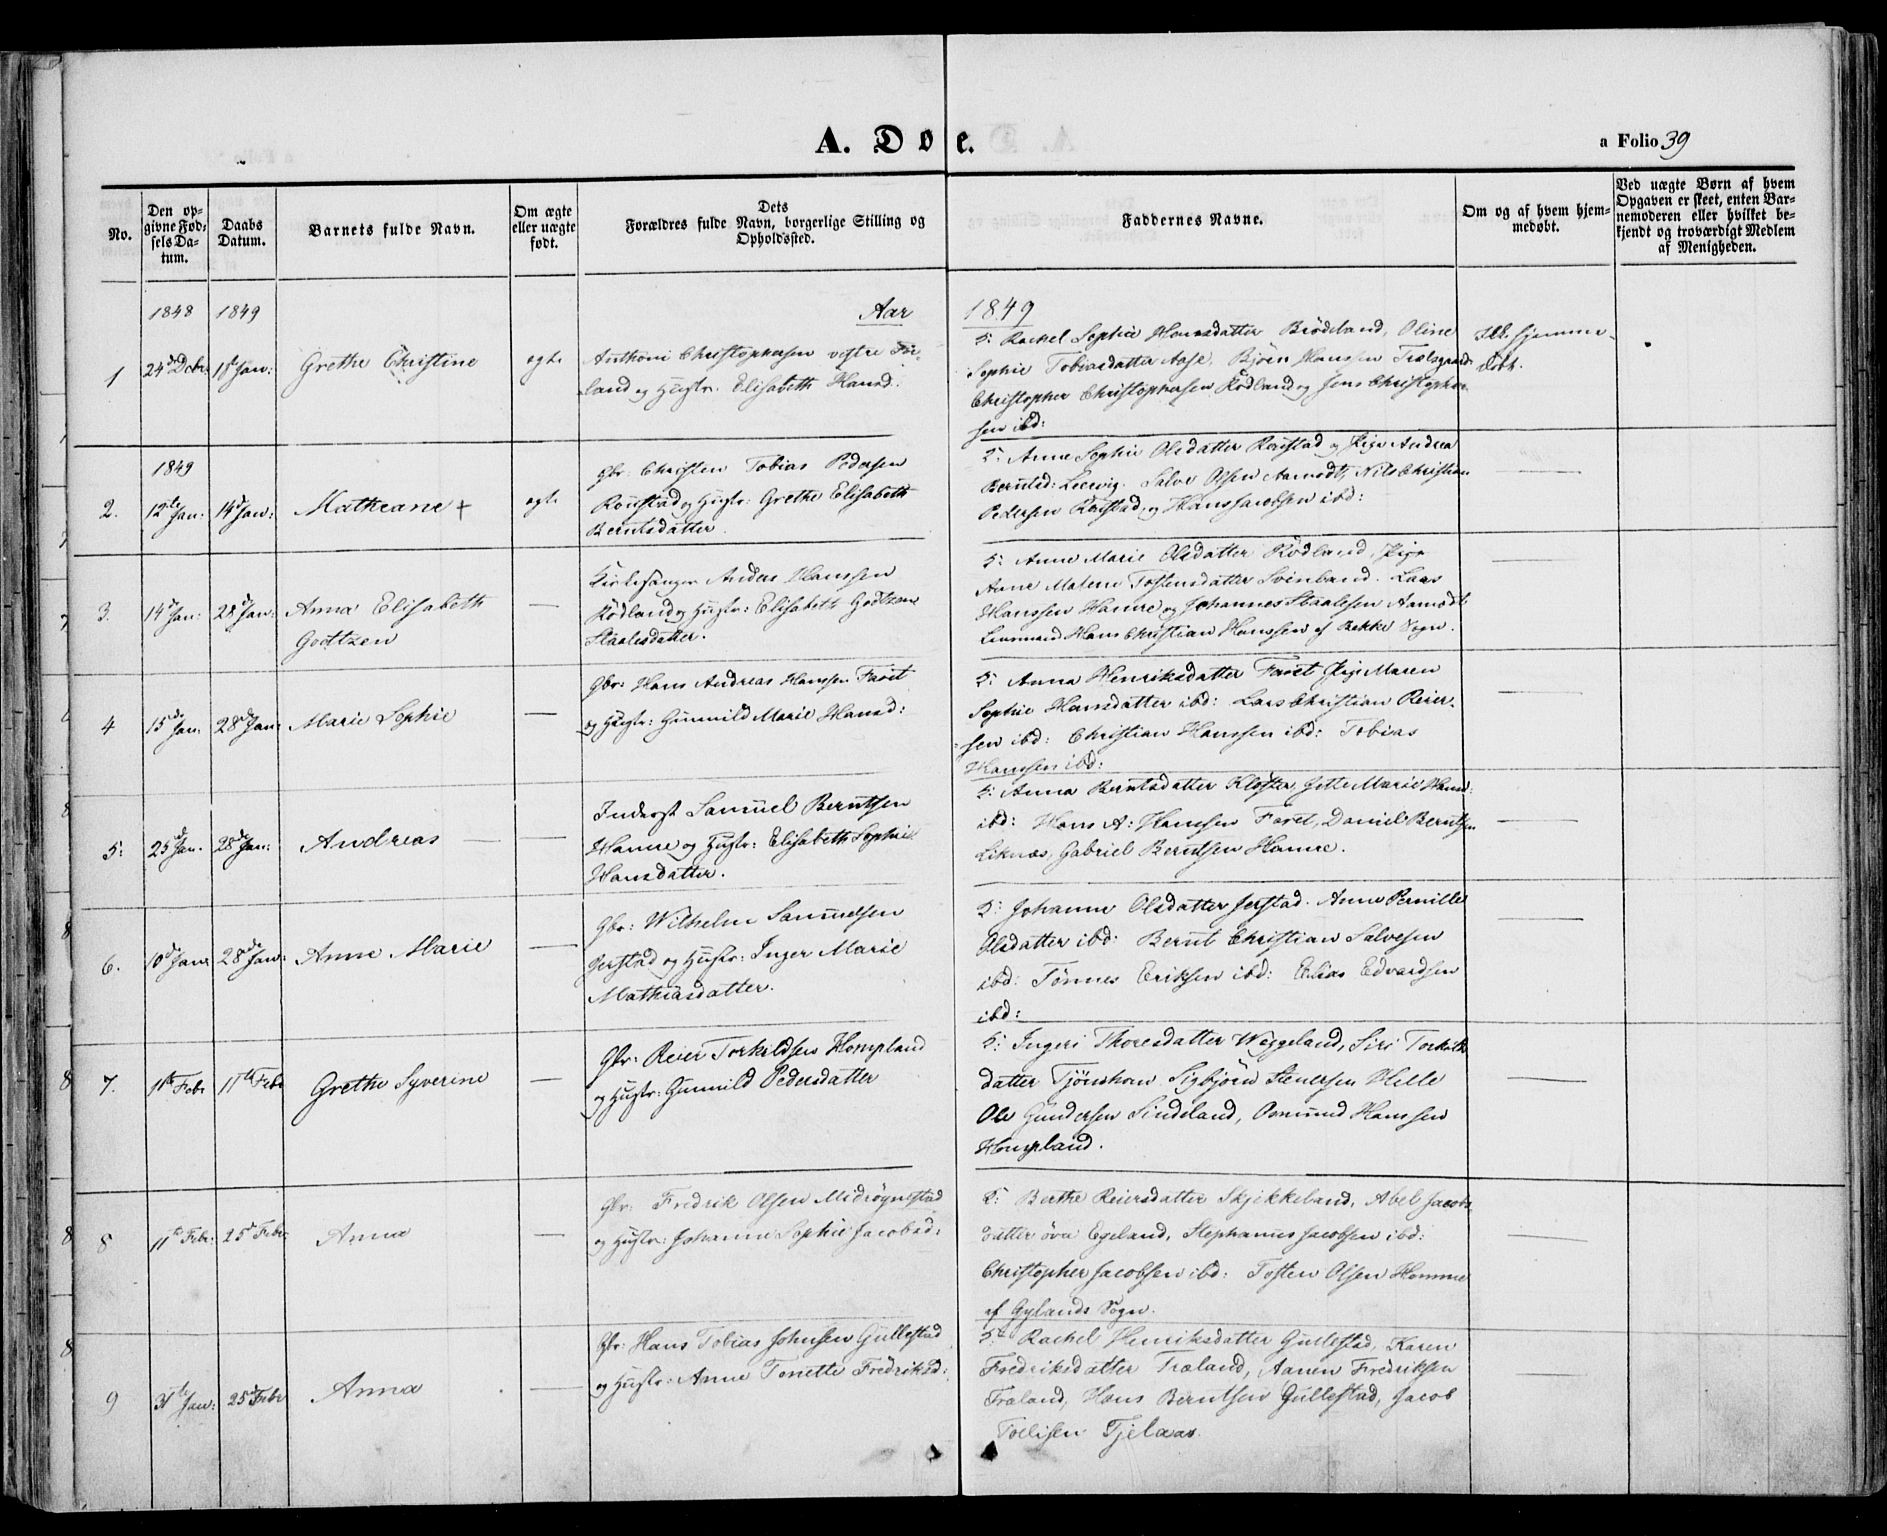 A. Døe.
a Folio 39
No.
Den opgivne Fødsels Datum.
Daabs Datum.
Barnets fulde Navn.
Om ægte eller uægte født.
Dets Forældres fulde Navn, borgerlige Stilling og Opholdssted.
Faddernes Navne.
Om og af hvem hjemmedøbt.
Ved uægte Børn af hvem Opgaven er skeet, enten Barnemoderen eller hvilket bekjendt og troværdigt Medlem af Menigheden.
1848 1849 Aar 1849
1 24de Debr 1ste Jan: Grethe Christine egte
Anthoni Christophersen vestre
land og Hustr. Elisabeth Hansd:
5: Rachel Sophie Hansdatter Brödeland, Oline
Sophie Tobiasdatter Aase, Björn Hanssen
Christopher Christophersen Rödland og Jens Christopher
sen ibd:
hjemme
döbt.
1849
2. 12te Jan. 14de Jan: Matheane + egte
Gbr: Christen Tobias Pedersen
Röustad og Hustr: Grethe Elisabeth
Berntsdatter.
5: Anne Sophie Olsdatter Röustad og Pige Andrea
Berntsd: Leervig. Salve Olsen Aamodt, Nils Christian
Pedersen Röustad og Hans Jacobsen ibd:
3. 14de Jan: 28de Jan: Anna Elisabeth —
Godtzen
Kirkesanger Anders Hanssen
Rödland og Hustr: Elisabeth Godtzen
Staalesdatter.
5: Anne Marie Olsdatter Rödland, Pige
Anne Malene Tostensdatter Svinland. Lars
Hanssen Hamre og Johannes Staalesen Aamodt
Lensmand Hans Christian Hanssen af Bakke Sogn.
4 15de Jan: 28de Jan: Marie Sophie —
Gbr: Hans Andreas Hanssen Faret
og Hustr: Gunnild Marie Hansd:
5: Anna Henriksdatter Faret Pige Maren
Sophie Hansdatter ibd: Lars Christian Reier-
sen ibd: Christian Hanssen ibd: Tobias
Hanssen ibd:
5: 25de Jan. 28de Jan: Andreas —
Inderst Samuel Berntsen
Hamre og Hustr: Elisabeth Sophie
Hansdatter.
5: Anna Berntsdatter Kloster, Gitte Marie Hansd:
ibd: Hans A: Hanssen Faret, Daniel Berntsen
Liknæs, Gabriel Berntsen Hamre.
6. 10de Jan: 28de Jan: Anne Marie —
Gbr: Wilhelm Samuelsen
Jerstad og Hustr: Inger Marie
Mathiasdatter.
5: Johanne Olsdatter Jerstad. Anne Pernille
Olsdatter ibd: Bernt Christian Salvesen
ibd: Tönnes Eriksen ibd: Elias Edvardsen
ibd:
7. 1ste Febr 11te Febr Grethe Syverine —
Gbr: Reier Torkildsen Hompland
og Hustr: Gunnild Pedersdatter
5: Ingeri Thoresdatter Weggeland, Siri Torkilds
datter Tjömhom Sigbjörn Stenersen Helle
Ole Gundersen Sindeland, Osmund Hanssen
Hompland.
8 11te Febr: 25de Febr: Anna —
Gbr: Fredrik Olsen Midrögnestad
og Hustr: Johanne Sophie Jacobsd:
5: Berthe Reiersdatter Skjekkeland, Abel Jacobs
datter övre Egeland, Stephanus Jacobsen ibd:
Christopher Jacobsen ibd: Tosten Olsen Homme
af Gylands Sogn.
9 31te Jan: 25de Febr Anna —
Gbr: Hans Tobias Johnsen Gullestad
og Hustr: Anne Tonette Fredriksd:
5: Rachel Henriksdatter Gullestad, Karen
Fredriksdatter Træland, Aanen Fredriksen
Træland, Hans Berntsen Gullestad, Jacob
Tollisen Tjelaas.